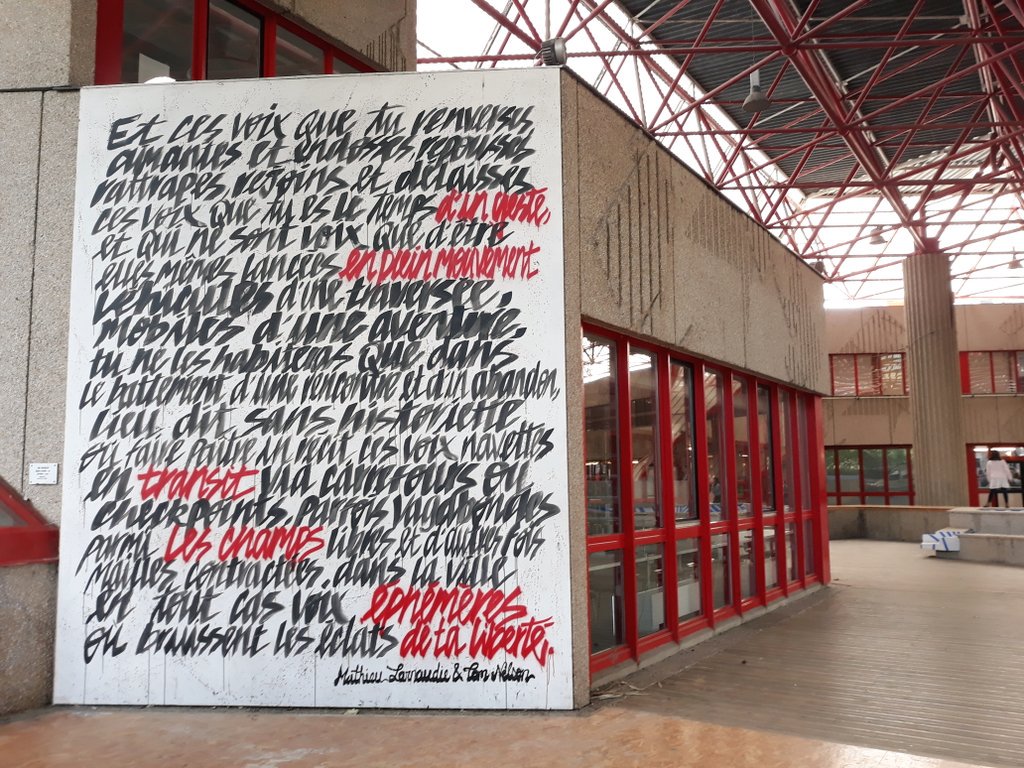 Et ces voix que tu renverses
aimantes et endosses repousses
rattrapes, rejoins et délaisses
ces voix que tu es le temps d'un geste,
et qui ne sont voix que d'être
elles mêmes lancées en plein mouvement
véhicules d'une traversée,
mobiles d'une aventure,
tu ne les habiteras que dans
le battement d'une rencontre et d'un abandon,
lieu dit sans historiette
où faire paître un récit ces voix navettes
en transit via carrefours ou
checkpoints, parfois vagabondes
parmi les champs libres et d'autres fois
mailles contractées, dans la ville
en tout cas voix éphémères
où bruissent les éclats de ta liberté.
Mathieu Larnaudie & Tom Nelson